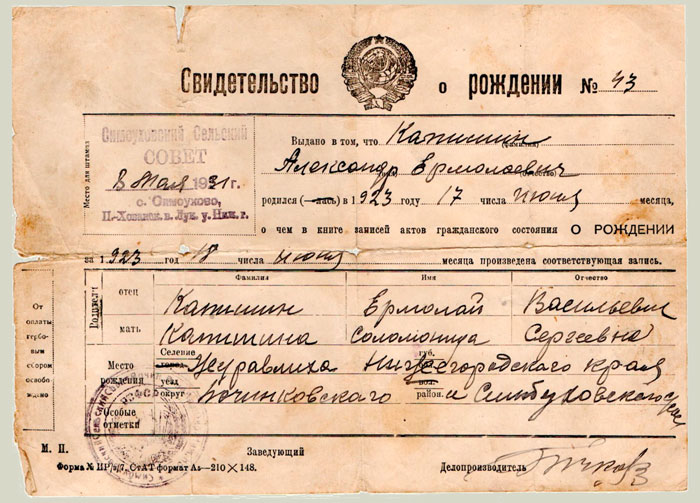 Свидетельство о рождении № 43
Симбуховский Сельский
СОВЕТ
8 Мая 1931 г.
с. Симбухово,
Место для штампа
Выдано в том, что Капишин
(фамилия)
Александр Ермолаевич
(имя) (отчество)
родился (—лась) в 1923 году 17 числа июня месяца,
о чем в книге записей актов гражданского состояния О РОЖДЕНИИ
за 1923 год 18 числа июня месяца произведена соответствующая запись.
От
оплаты
гербо-
вым
сбором
освобо-
ждено
Родители
Фамилия Имя Отчество
отец Капишин Ермолай Васильевич
мать Капишина Соломонида Сергеевна
Место рождения
Селение Журавлиха губ. Нижегородского края
город
уезд
округ Починковского вол. район. и Симбуховского
Особые
отметки
М. П. Заведующий
Делопроизводитель
Форма № ИР/з/7. СтАТ формат А5—210×148.